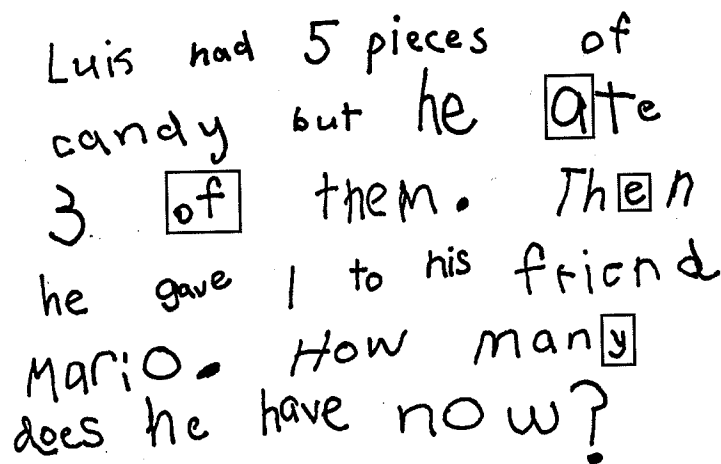 Luis had 5 pieces of
candy but he ate
3 of them. Then
he gave 1 to his friend
Mario. How many
does he have now?